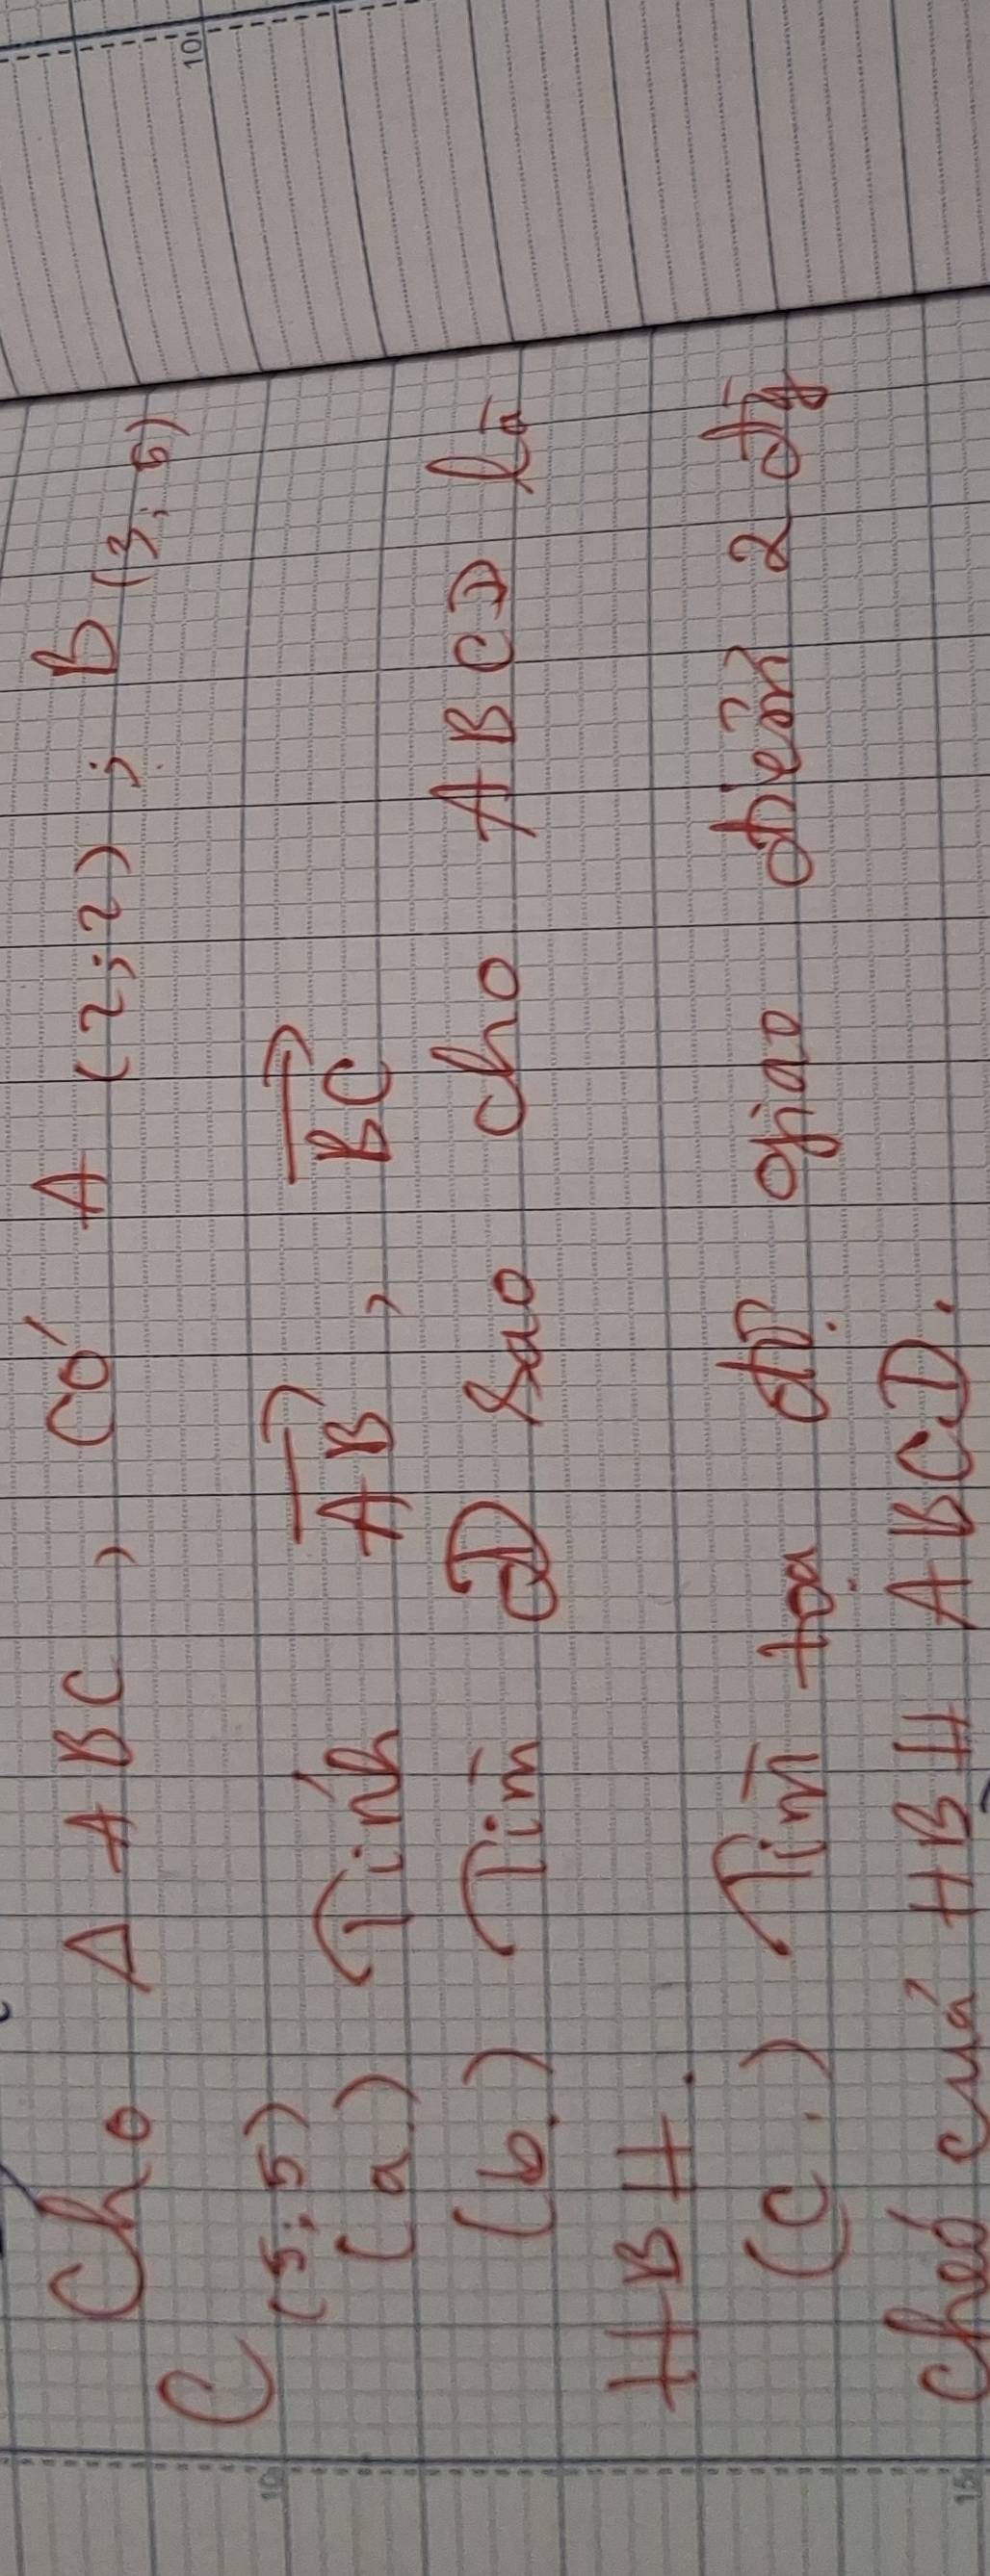 Cho Δ ABC, có A (2;2); B (3;6)
C (5;5)
(a.) Tính AB, BC
(b.) Tìm D sao cho ABCD là
HBH.
(c.) Tìm tọa độ giao điểm 2 đg
chéo của HBH ABCD.
10
10
15